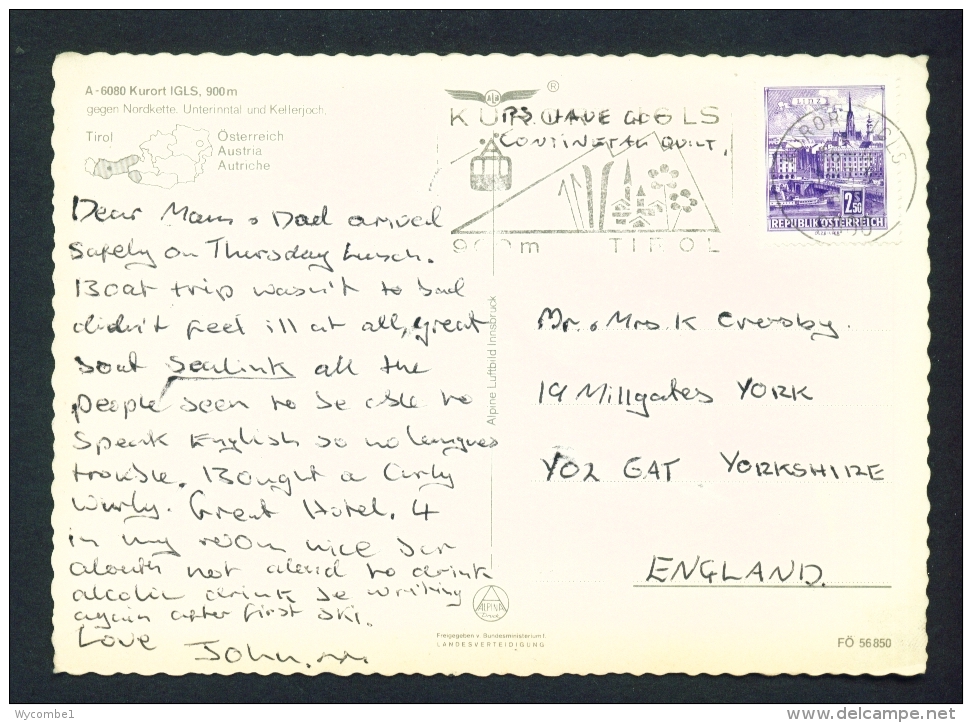 A-6080 Kurort IGLS, 900 m
gegen Nordkette. Unterinntal und Kellerjoch.
Tirol
Österreich
Austria
Autriche
KURORT IGLS
900m TIROL
PS. HAVE GOT
CONTINETAL QUILT.
LINZ
2.50
REPUBLIK ÖSTERREICH
Dear Mam & Dad arrived
safely on Thursday lunch.
Boat trip wasn't to bad
didn't feel ill at all, great
boat Sealink all the
people seen to be able to
speak English so no langues
trouble. Bought a Curly
Wurly. Great Hotel. 4
in my room nice bar
alouth not alowd to drink
alcolic drink be writing
again after first ski.
Love John.
Alpine Luftbild Innsbruck
Mr. & Mrs. K Crensby.
19 Millgates YORK
YO2 GAT YORKSHIRE
ENGLAND.
ALPINA
Druck
Freigegeben v. Bundesministerium f.
LANDESVERTEIDIGUNG
FÖ 56 850
Wycombe1